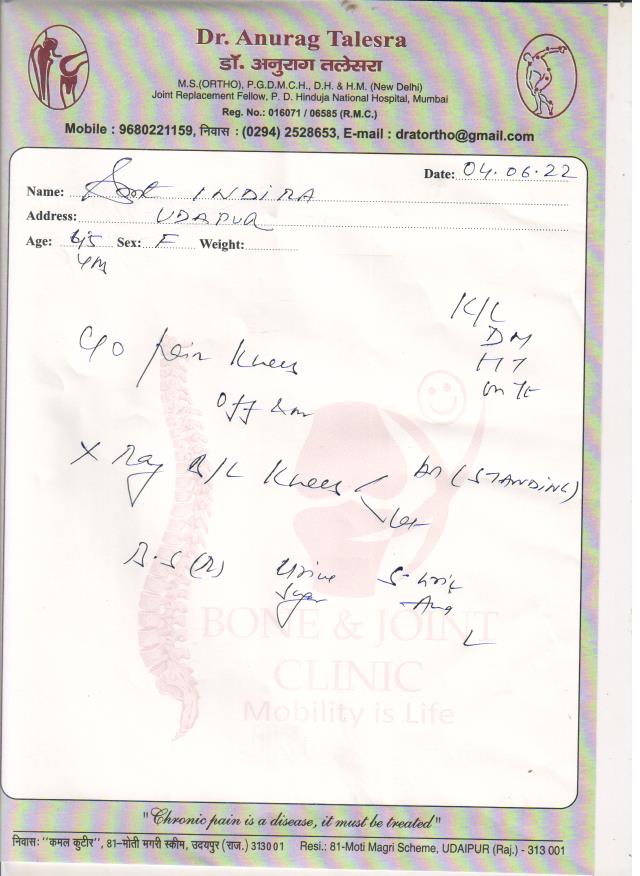 Dr. Anurag Talesra
डॉ. अनुराग तलेसरा
M.S.(ORTHO), P.G.D.M.C.H., D.H. & H.M. (New Delhi)
Joint Replacement Fellow, P. D. Hinduja National Hospital, Mumbai
Reg. No.: 016071 / 06585 (R.M.C.)
Mobile : 9680221159, निवास : (0294) 2528653, E-mail : dratortho@gmail.com
Date: 04.06.22
Name: INDIRA
Address: UDAPUR
Age: Sex: F Weight:
K/L
DM
HT
C/O pain Knees
X Ray B/L Knees (STANDING)
B.S (R) Urine S.
Sugar
BONE & JOINT
CLINIC
Mobility is Life
"Chronic pain is a disease, it must be treated"
निवास: "कमल कुटीर", 81-मोती मगरी स्कीम, उदयपुर (राज.) 313001 Resi.: 81-Moti Magri Scheme, UDAIPUR (Raj.) - 313 001